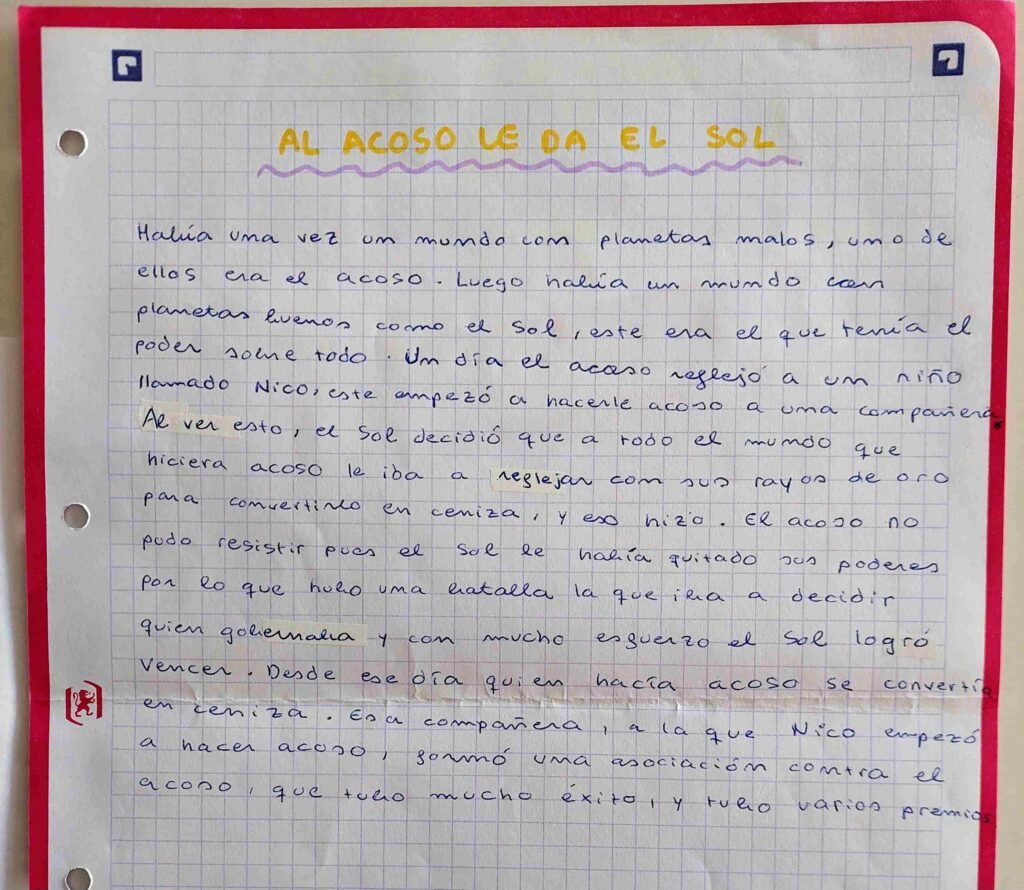 AL ACOSO LE DA EL SOL
Había una vez un mundo con planetas malos, uno de
ellos era el acoso. Luego había un mundo con
planetas buenos como el sol, este era el que tenía el
poder sobre todo. Un día el acoso reflejó a un niño
llamado Nico, este empezó a hacerle acoso a una compañera.
Al ver esto, el sol decidió que a todo el mundo que
hiciera acoso le iba a reflejar con sus rayos de oro
para convertirlo en ceniza, y eso hizo. El acoso no
pudo resistir pues el sol le había quitado sus poderes
por lo que hubo una batalla la que iba a decidir
quien gobernaba y con mucho esfuerzo el sol logró
vencer. Desde ese día quien hacía acoso se convertía
en ceniza. Esa compañera, a la que Nico empezó
a hacer acoso, formó una asociación contra el
acoso, que tubo mucho éxito, y tubo varios premios